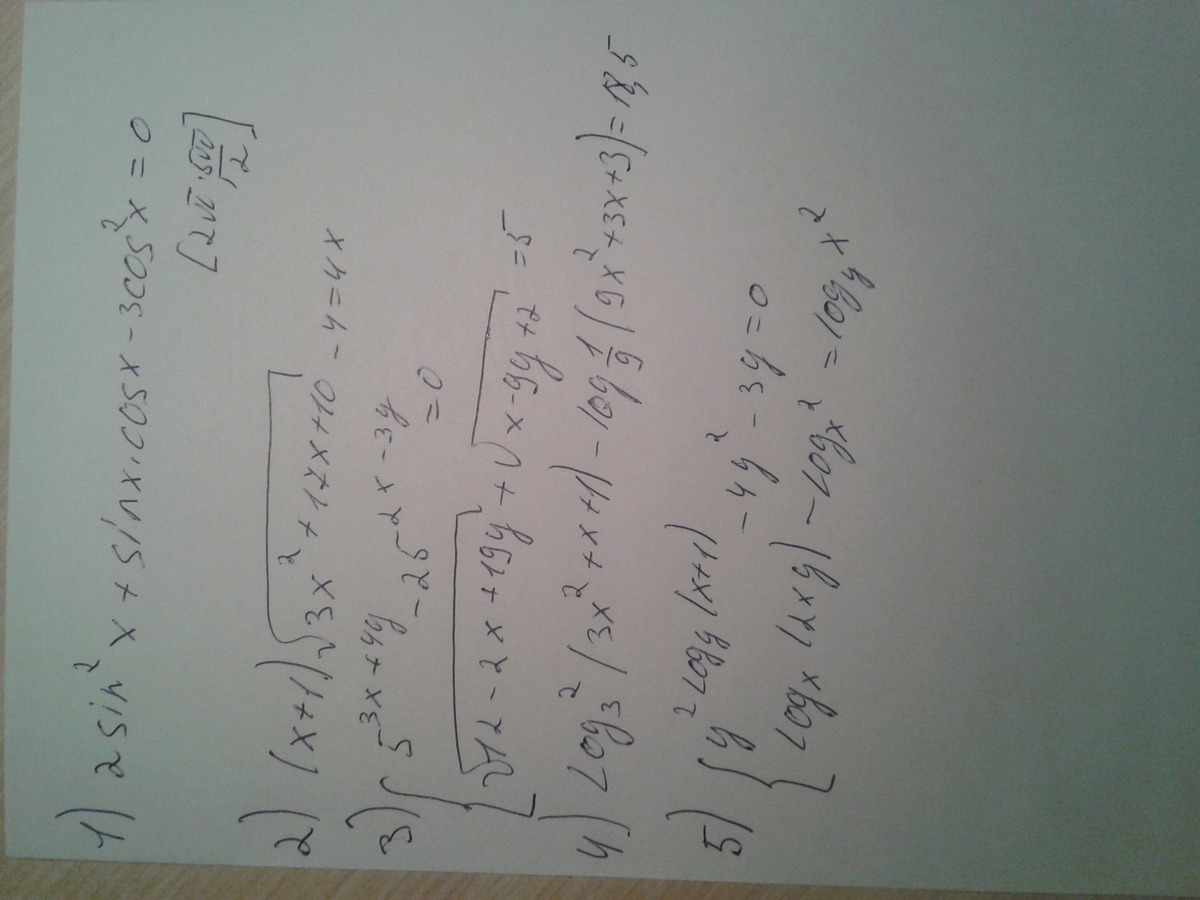 1) 2 sin² x + sin x · cos x - 3cos² x = 0
[2π · 5π/2]
2) (x+1)√(3x² + 12x + 10) - 4 = 4x
3) { 5^(3x+4y) - 25^(-2x-3y) = 0
√(12 - 2x + 19y) + √(x - 9y + 2) = 5
4) Log₃² (3x² + x + 1) - log 1/9 (9x² + 3x + 3) =
5) { y² Log y (x+1) - 4y² - 3y = 0
Log x (2xy) - Log x² = log y x²